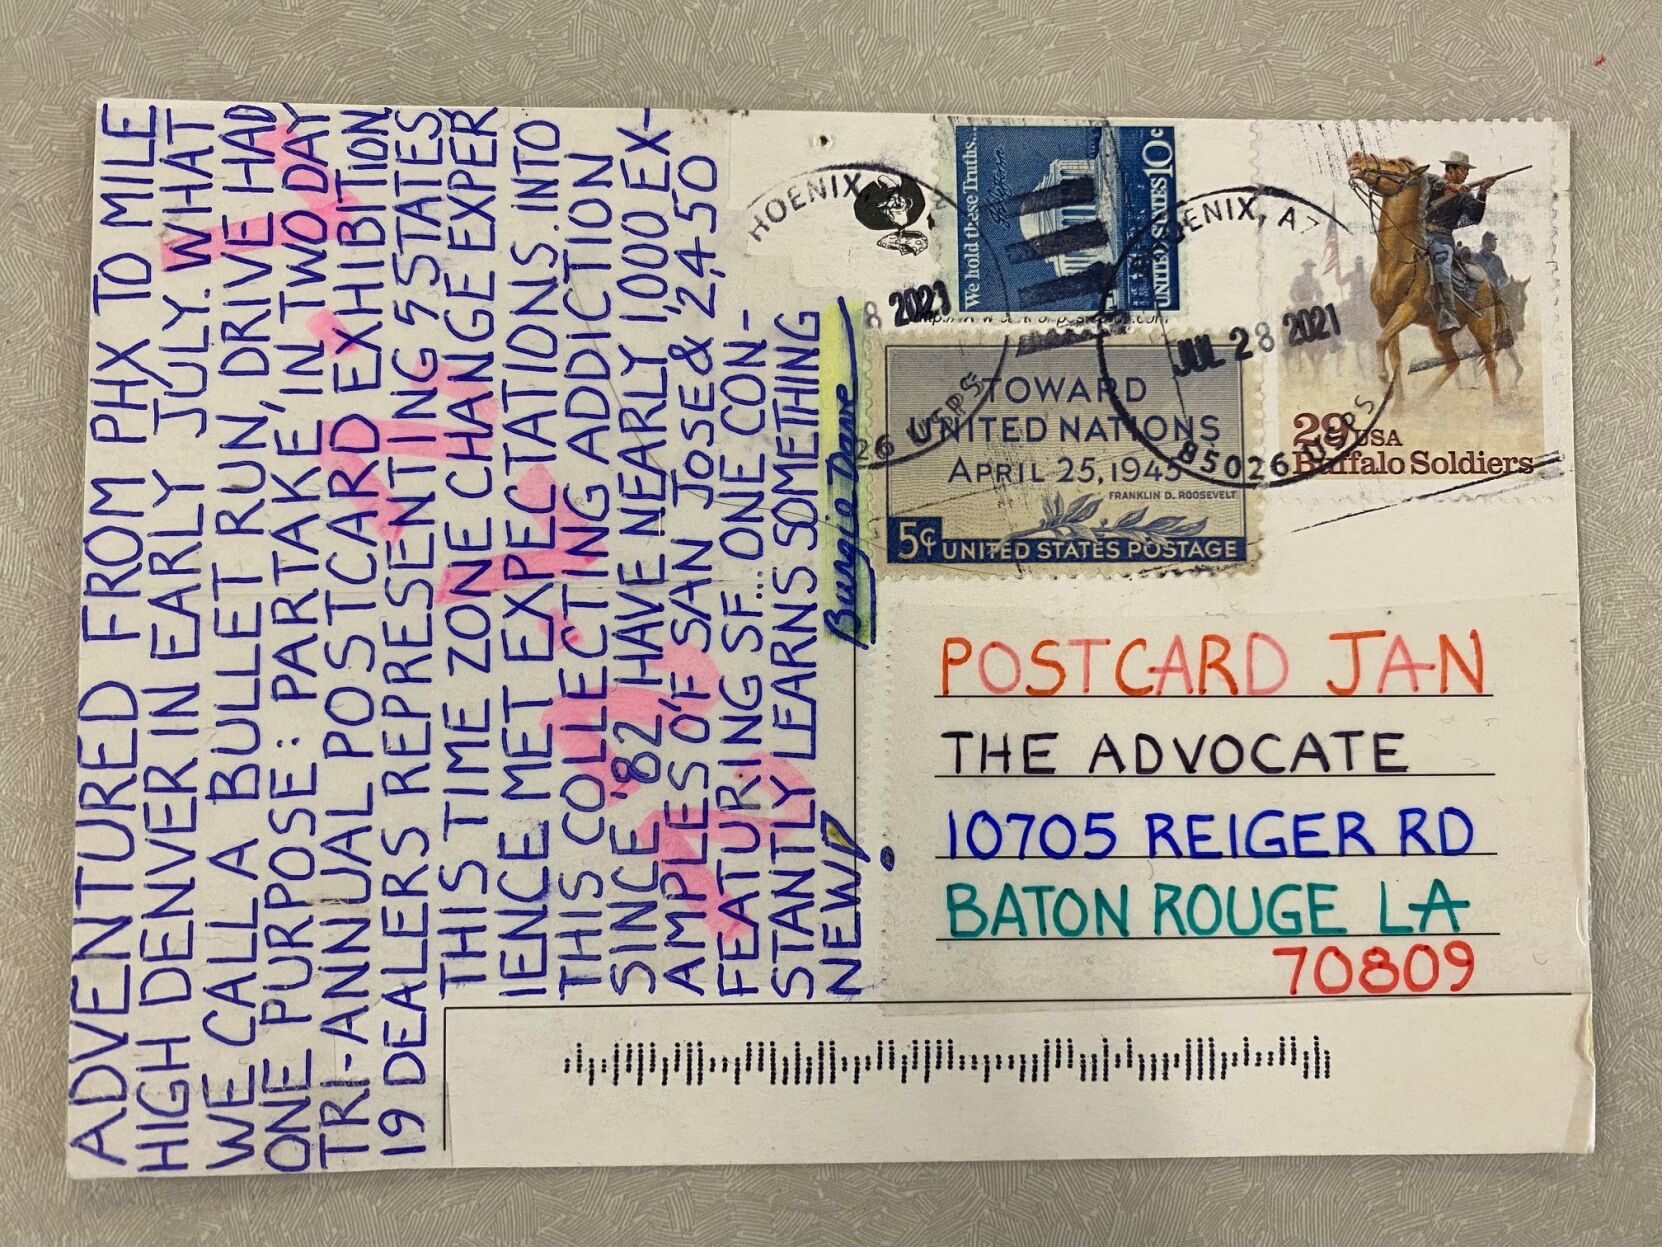 ADVENTURED FROM PHX TO MILE
HIGH DENVER IN EARLY JULY. WHAT
WE CALL A BULLET RUN, DRIVE HAD
ONE PURPOSE: PARTAKE, IN TWO DAY
TRI-ANNUAL POSTCARD EXHIBITION
19 DEALERS REPRESENTING 5 STATES
THIS TIME ZONE CHANGE EXPER
IENCE MET EXPECTATIONS. INTO
THIS COLLECTING ADDICTION
SINCE '82 HAVE NEARLY 1,000 EX-
AMPLES O'F SAN JOSE & 2,450
FEATURING SF... ONE CON-
STANTLY LEARNS SOMETHING
NEW!
HOENIX,
8 2021
26 USPS
We hold these Truths...
UNITED STATES 10c
OENIX, AZ
JUL 28 2021
85026 USPS
29 USA
Buffalo Soldiers
TOWARD
UNITED NATIONS
APRIL 25, 1945
FRANKLIN D. ROOSEVELT
5¢ UNITED STATES POSTAGE
POSTCARD JAN
THE ADVOCATE
10705 REIGER RD
BATON ROUGE LA
70809